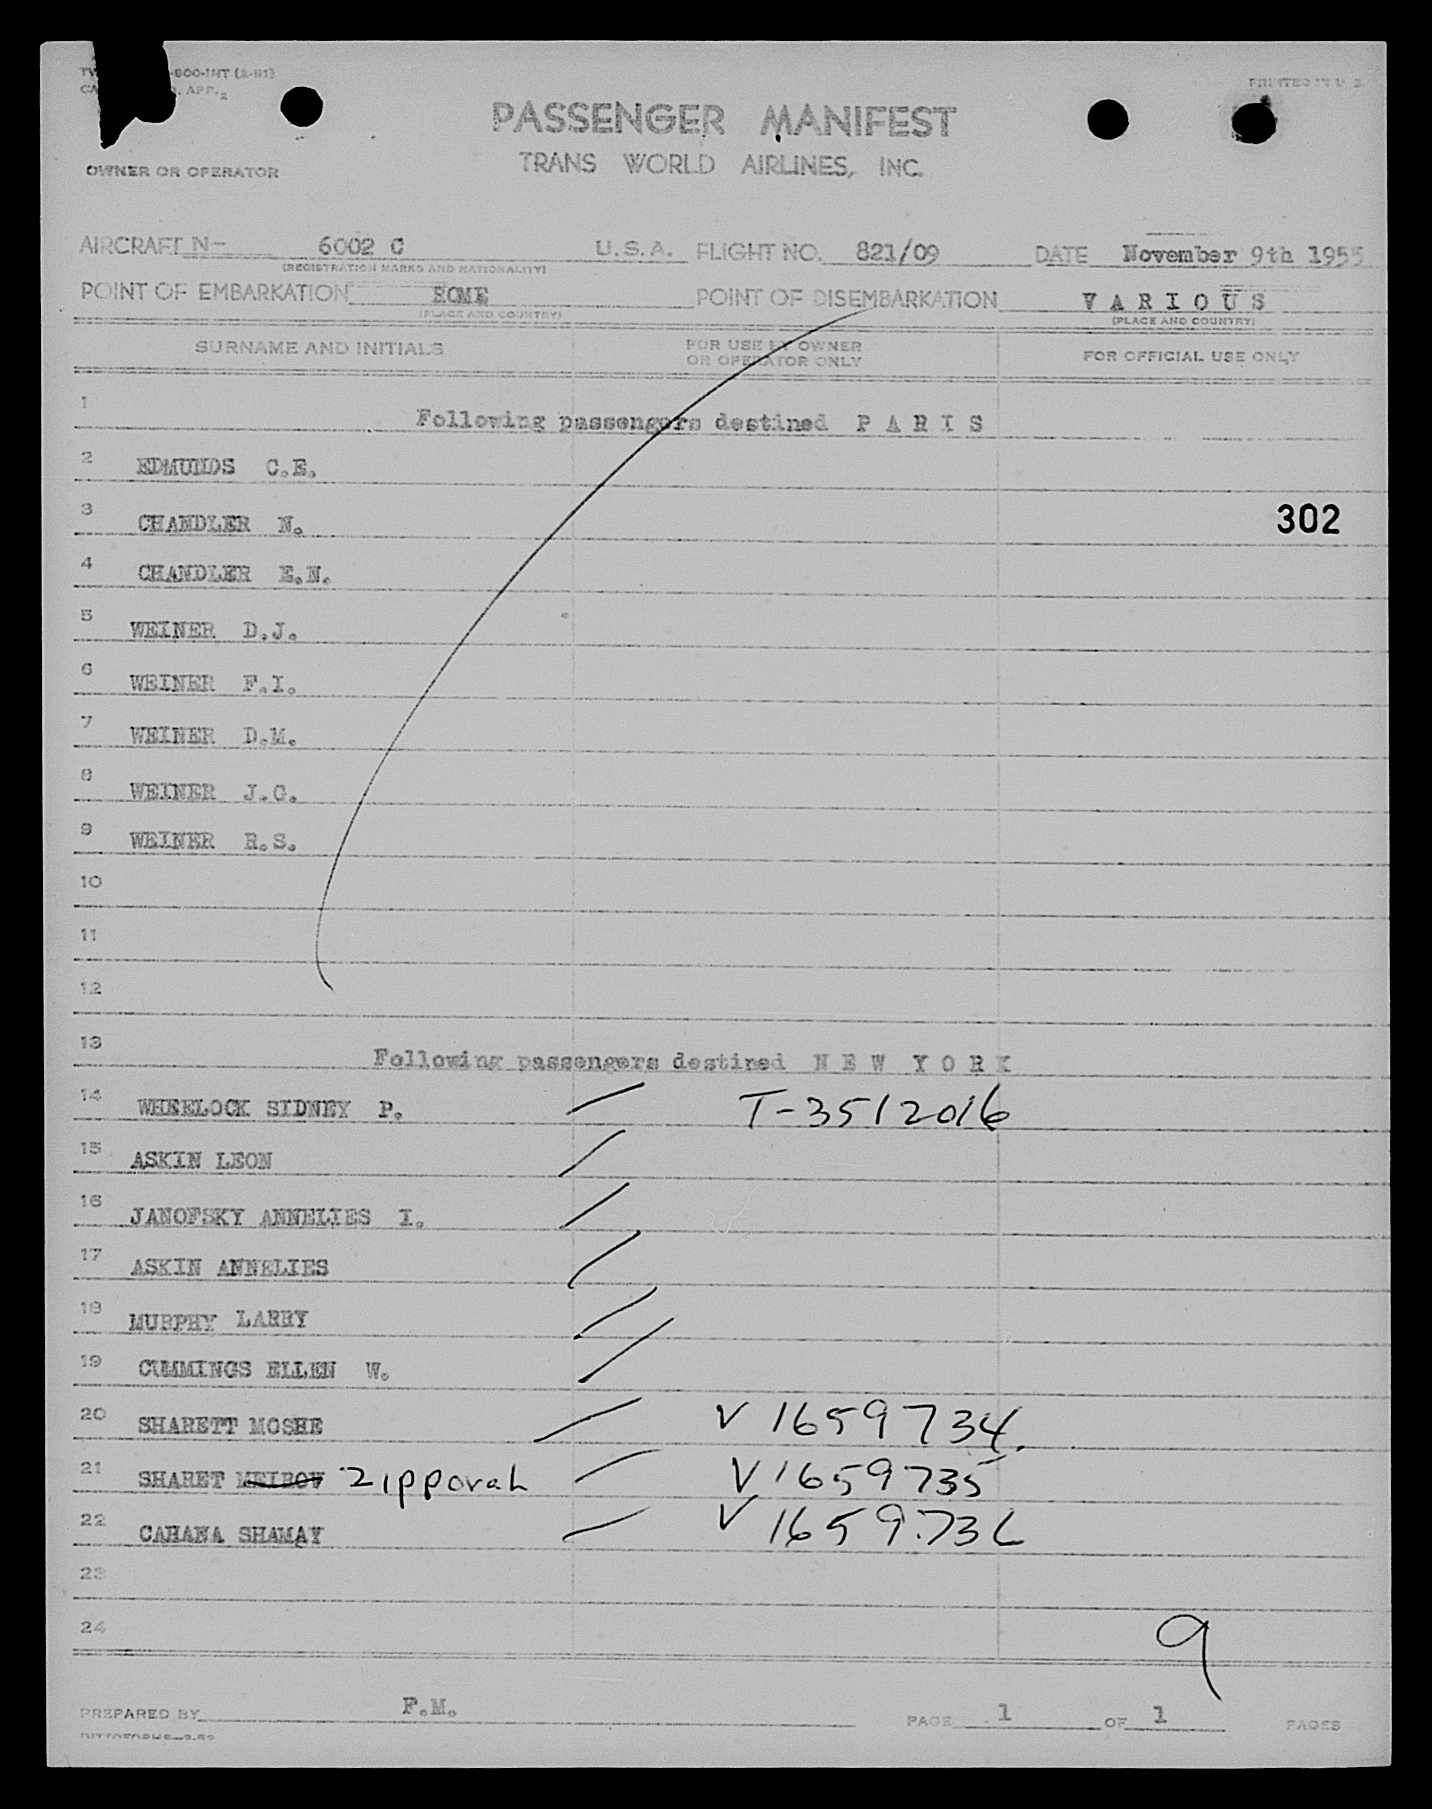 -800-INT (2-51)
PRINTED IN U. S.
APP.
PASSENGER MANIFEST
OWNER OR OPERATOR
TRANS WORLD AIRLINES, INC.
AIRCRAFT N- 6002 C U.S.A. FLIGHT NO. 821/09 DATE November 9th 1955
(REGISTRATION MARKS AND NATIONALITY)
POINT OF EMBARKATION ROME POINT OF DISEMBARKATION V A R I O U S
(PLACE AND COUNTRY) (PLACE AND COUNTRY)
SURNAME AND INITIALS FOR USE BY OWNER OR OPERATOR ONLY FOR OFFICIAL USE ONLY
1 Following passengers destined P A R I S
2 EDMUNDS C.E.
3 CHANDLER N. 302
4 CHANDLER E.N.
5 WEINER D.J.
6 WEINER F.I.
7 WEINER D.M.
8 WEINER J.G.
9 WEINER R.S.
10
11
12
13 Following passengers destined N E W Y O R K
14 WHEELOCK SIDNEY P. T-3512016
15 ASKIN LEON
16 JANOFSKY ANNELIES I.
17 ASKIN ANNELIES
18 MURPHY LARRY
19 CUMMINGS ELLEN W.
20 SHARETT MOSHE V 1659734.
21 SHARET Zipporah V 1659735
22 CAHANA SHAMAY V 1659736
23
24
9
PREPARED BY F.M. PAGE 1 OF 1 PAGES